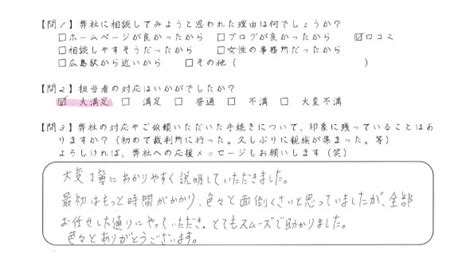 【問1】弊社に相談してみようと思われた理由は何でしょうか?
□ホームページが良かったから □ブログが良かったから ☑口コミ
□相談しやすそうだったから □女性の事務所だったから
□広島駅から近いから □その他(         )
【問2】担当者の対応はいかがでしたか?
☑ 大満足 □ 満足 □ 普通 □ 不満 □ 大変不満
【問3】弊社の対応やご依頼いただいた手続きについて、印象に残っていることはあ
りますか?(初めて裁判所に行った。久しぶりに親族が集まった。等)
よろしければ、弊社への応援メッセージもお願いします(笑)
大変丁寧にわかりやすく説明していただきました。
最初はもっと時間がかかり、色々と面倒くさいと思っていましたが、全部
お任せした通りにやっていただき、とてもスムーズで助かりました。
色々とありがとうございます。